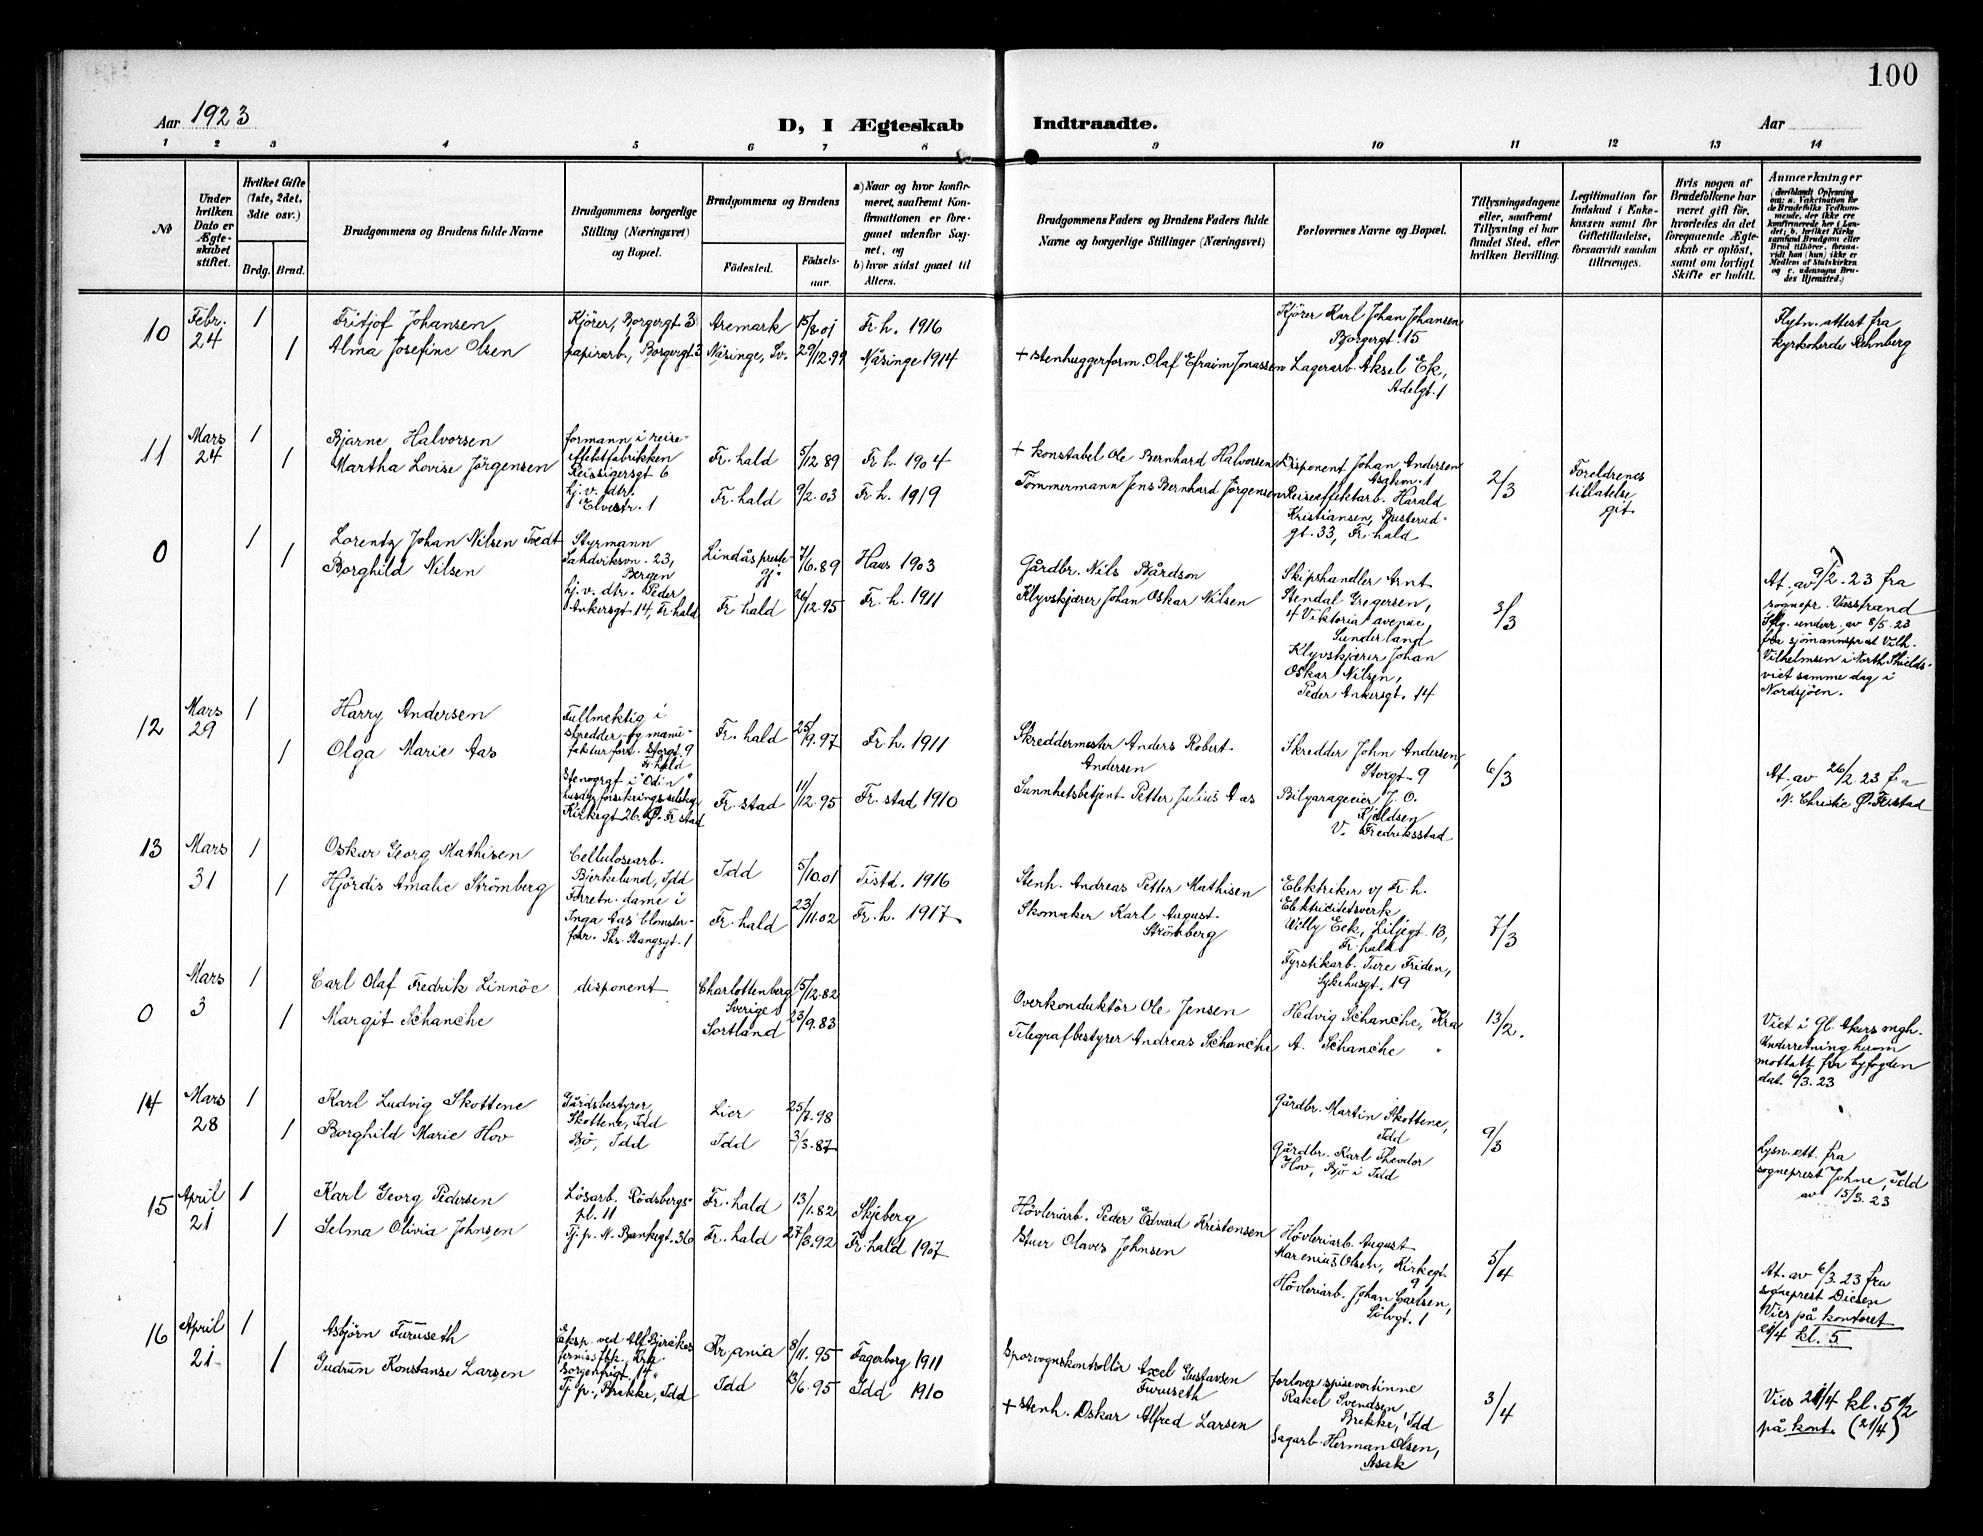 100
Aar 1923
D, I Ægteskab Indtraadte.
Aar
1 2 3 4 5 6 7 8 9 10 11 12 13 14
No
Under hvilken Dato er Ægteskabet stiftet.
Hvilket Gifte (1ste, 2det, 3die osv.)
Brdg. Brud.
Brudgommens og Brudens fulde Navne
Brudgommens borgerlige Stilling (Næringsvei) og Bopæl.
Brudgommens og Brudens
Fødested.
Fødselsaar.
a) Naar og hvor konfirmeret, saafremt Konfirmationen er foregaaet udenfor Sognet, og
b) hvor sidst gaaet til Alters.
Brudgommens Faders og Brudens Faders fulde Navne og borgerlige Stillinger (Næringsvei)
Forlovernes Navne og Bopæl.
Tillysningsdagene eller, saafremt Tillysning ei har fundet Sted, efter hvilken Bevilling.
Legitimation for Indskud i Enkekassen samt for Giftetilladelse, forsaavidt saadan tiltrænges.
Hvis nogen af Brudefolkene har været gift før, hvorledes da det foregaaende Ægteskab er opløst, samt om lovligt Skifte er holdt.
Anmærkninger
10
Febr. 24
1
1
Fritjof Johansen
Alma Josefine Olsen
Kjörer, Borgergt 3
papirarb., Borgergt. 3
Aremark 15/8.01 Fr.h. 1916
Näsinge, Sv. 29/12.99 Näsinge 1914
+ stenhuggerform. Olaf Efraim Jonassen
Kjörer Karl Johan Johansen
Borgergt. 15
Lagerarb. Aksel Ek,
Adelgt. 1
Lysn. attest fra
kyrkoherde Rehnberg
11
Mars 24
1
1
Bjarne Halvorsen
Martha Lovise Jörgensen
formann i reise-
effektfabrikken
Reissigersgt 6
hj. v. dtr.
Elvestr. 1
Fr. hald 5/12 89 Fr.h. 1904
Fr. hald 9/2. 03 Fr.h. 1919
+ konstabel Ole Bernhard Halvorsen
Tömmermann Jens Bernhard Jörgensen
Disponent Johan Andersen
Reiseeffektarb. Harald
Kristiansen, Busterud-
gt. 33, Fr.hald
2/3
Foreldrenes
tillatelse
git
0
1
1
Lorentz Johan Nilsen Tvedt
Borghild Nilsen
Styrmann
Sandviksvn. 23,
Bergen
hj. v. dtr. Peder
Ankersgt 14, Fr.hald
Lindås preste-
gj. 7/6.89 Haus 1903
Fr. hald 26/12.95 Fr.h. 1911
Gårdbr. Nils Bårdson
Klyvskjærer Johan Oskar Nilsen
Skipshandler Arnt
Stendal Gregersen,
4 Viktoria avenue,
Sunderland
Klyvskjærer Johan
Oskar Nilsen,
Peder Ankersgt. 14
3/3
At. av 9/2. 23 fra
sognepr. Vasstrand
Iflg. underr. av 8/5. 23
fra sjömannsprest Vilh.
Vilhelmsen i North Shields-
viet samme dag i
Nordsjöen.
12
Mars 29
1
1
Harry Andersen
Olga Marie Aas
Fullmektig i
skredder- og manu-
fakturforr. Storgt. 9
Fr.hald
Stenogrgt i "Odin"
Kirkegt 26. Ø. Fr.stad
Fr. hald 25/9.97 Fr.h. 1911
Fr. stad 11/12.95 Fr. stad 1910
Skreddermester Anders Robert
Andersen
Sunnhetsbetjent Petter Julius Aas
Skredder John Andersen,
Storgt. 9
Bilgarageeier J. O.
Kjeldsen
V. Fredriksstad
6/3
At. av 26/2. 23 fra
N. Christie Ø. Fr.stad
13
Mars 31
1
1
Oskar Georg Mathisen
Hjördis Amalie Strömberg
Cellulosearb.
Bjerkelund, Idd
Forretn. dame i
Inga Aas' blomster-
forr. Ths. Stangsgt. 1
Idd 5/10.01 Tistd. 1916
Fr. hald 23/11.02 Fr.h. 1917
Stenh. Andreas Petter Mathisen
Skomaker Karl August
Strömberg
Elektriker v/ Fr.h.
Elektricitetsverk
Willy Eek, Liljegt. 13,
Fr.hald
Fyrstikarb. Ture Friden,
Sykehusgt. 19
7/3
0
Mars 3
1
1
Carl Olaf Fredrik Linnöe
Margit Schanche
disponent
Charlottenberg
Sverige 15/12.82
Sortland 23/9.83
Overkonduktör Ole Jensen
Telegrafbestyrer Andreas Schanche
Hedvig Schanche, Kra
A. Schanche "
13/2.
Viet i Gl. Akers mgh.
Underretning herom
mottatt fra byfogden
dat. 6/3. 23
14
Mars 28
1
1
Karl Ludvig Skottene
Borghild Marie Hov
Gårdsbestyrer,
Skottene, Idd
Bö, Idd
Lier 25/7.98
Idd 3/3.87
Gårdbr. Martin Skottene,
Idd
Gårdbr. Karl Theodor
Hov, Bö i Idd
9/3
Lysn. att. fra
sogneprest Johne, Idd
av 15/3. 23
15
April 21
1
1
Karl Georg Pedersen
Selma Olivia Johnsen
Lösarb. Rödsbergs-
pl. 11
Tj. p. N. Bankegt. 36
Fr. hald 13/1.82 Skjeberg
Fr. hald 27/8.92 Fr.hald 1907
Hövleriarb. Peder Edvard Kristensen
Stuer Olaves Johnsen
Hövleriarb. August
Marenius Olsen, Kirkegt.
9
Hövleriarb. Johan Carlsen,
Sölvgt. 1
5/4
At. av 6/3. 23 fra
sogneprest Diesen
Vies på kontoret
21/4 kl. 5
16
April 21
1
1
Asbjörn Furuseth
Gudrun Konstanse Larsen
Eksp. ved Alf Bjerckes
fernissfbk., Kra
Borgenfrigt. 14
Tj. p., Brekke, Idd
Kr.ania 8/11. 95 Fagerborg 1911
Idd 13/6.95 Idd 1910
Sporvognskontrollör Axel Gustavsen
Furuseth
+ stenh. Oskar Alfred Larsen
forlover spisevertinne
Rakel Svendsen
Brekke, Idd
Sagarb. Herman Olsen,
Asak
3/4
Vies 21/4 kl. 5 1/2
på kont. (21/4)